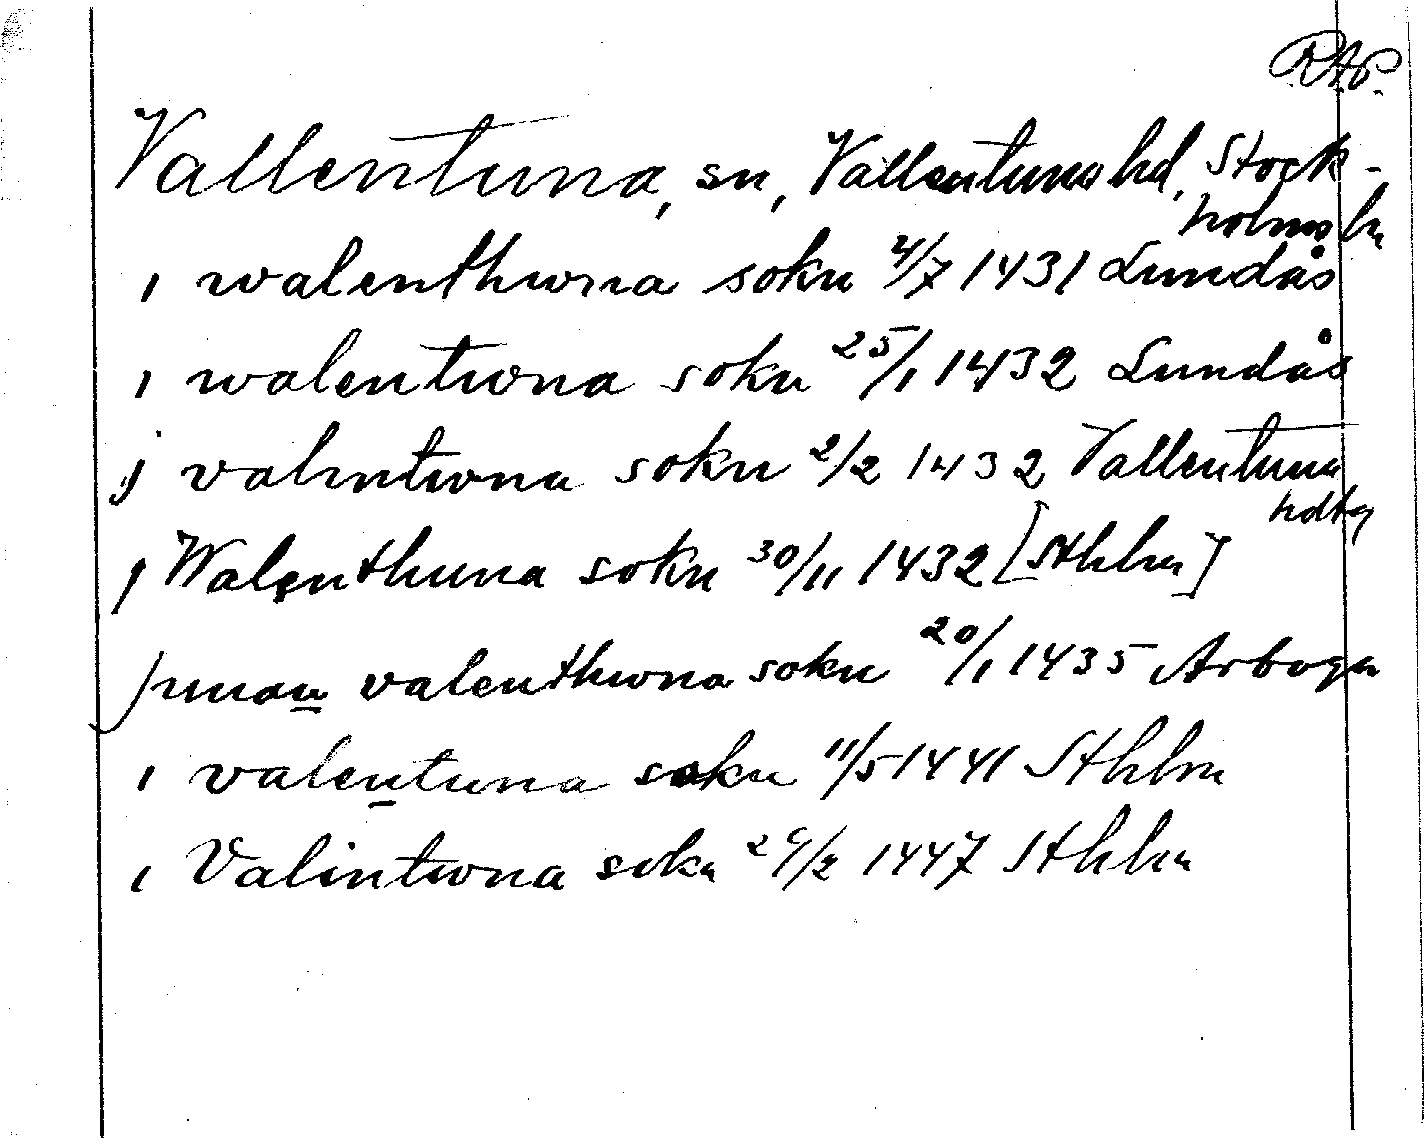 RAP.
Vallentuna, sn, Vallentuna hd, Stock-
holms ln
i walenthwna sokn 4/7 1431 Lundås
i walentwna sokn 25/1 1432 Lundås
ij valintwna sokn 2/2 1432 Vallentuna
hdtg
j Walenthuna sokn 30/11 1432 [Sthlm]
jnnan valenthwna sokn 20/1 1435 Arboga
i valentuna sokn 11/5 1441 Sthlm
i Valintwna sokn 1447 Sthlm